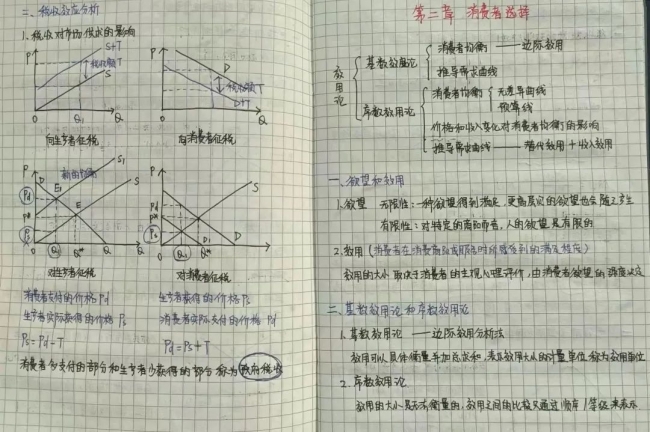 二、税收效应分析
1、税收对市场供求的影响
P
S+T
税收额T
S
O
Q1
Q
向生产者征税
P
D
税收额T
D+T
O
Q1
Q
向消费者征税
P
S1
S
D
E1
Pd
E
Ps
O
Q1
Q**
Q
对生产者征税
P
S
Pd
Ps
D1
D
O
Q1
Q**
Q
对消费者征税
消费者支付的价格 Pd
生产者实际获得的价格 Ps
Ps=Pd-T
生产者获得的价格 Ps
消费者实际支付的价格 Pd
Pd=Ps+T
消费者多支付的部分和生产者少获得的部分称为政府税收
第二章 消费者选择
效用论
基数效用论
消费者均衡 —— 边际效用
推导需求曲线
序数效用论
消费者均衡
无差异曲线
预算线
价格和收入变化对消费者均衡的影响
推导需求曲线 —— 替代效用+收入效用
一、欲望和效用
1、欲望 无限性：一种欲望得到满足，更高层次的欲望也会随之产生
有限性：对特定的商品而言，人的欲望是有限的
2、效用（消费者在消费商品或服务时所感受到的满足程度）
效用的大小取决于消费者的主观心理评价，由消费者欲望的强度决定
二、基数效用论和序数效用论
1、基数效用论 —— 边际效用分析法
效用可以具体衡量并加总求和，表示效用大小的计量单位称为效用单位
2、序数效用论
效用的大小是无法衡量的，效用之间的比较只通过顺序/等级来表示